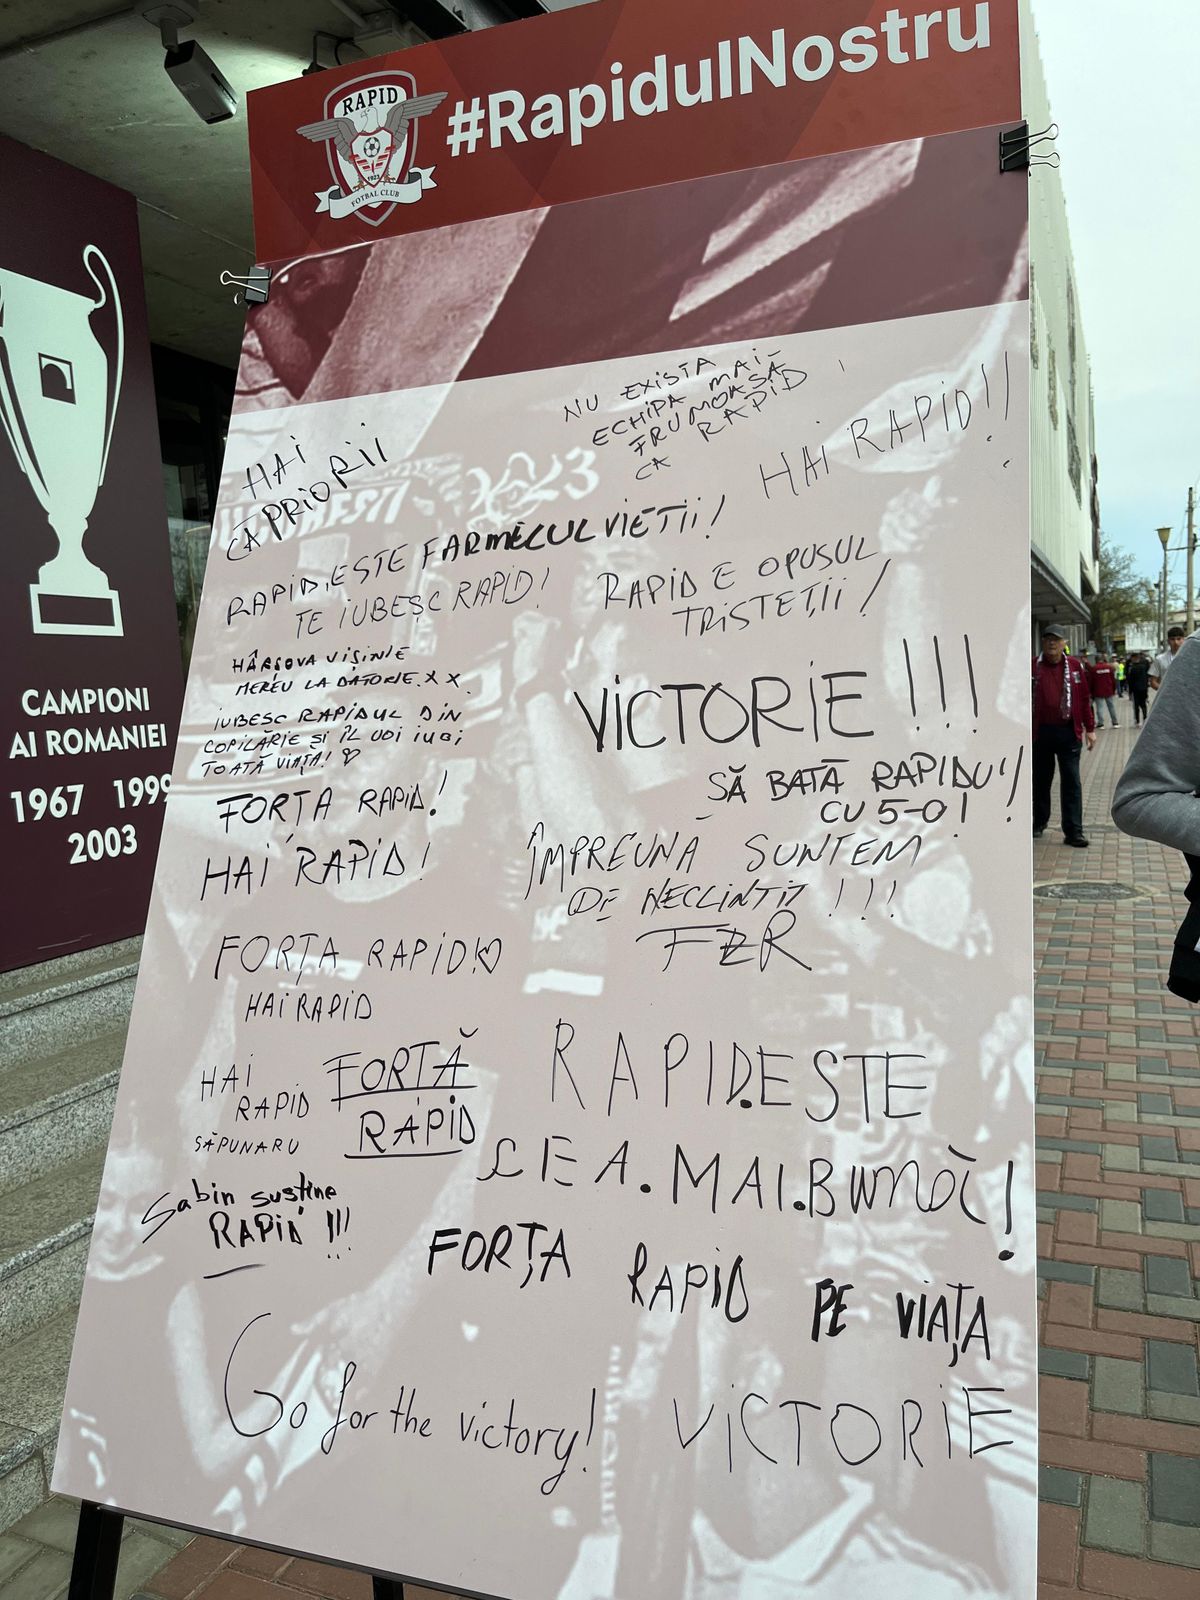 #RapidulNostru
RAPID
1923
FOTBAL CLUB
CAMPIONI
AI ROMANIEI
1967 1999
2003
NU EXISTA
ECHIPA MAI
FRUMOASĂ
CA RAPID
HAI
CAPRIORII
HAI RAPID!!
RAPID.ESTE FARMECUL VIETII!
TE IUBESC RAPID!
RAPID E OPUSUL
TRISTEȚII!
HÂRȘOVA VIȘINIE
MEREU LA DATORIE. X X.
IUBESC RAPIDUL DIN
COPILĂRIE ȘI ÎL VOI IUBI
TOATĂ VIAȚA! ♡
VICTORIE!!!
SĂ BATĂ RAPIDU'!
CU 5-0!
FORȚA RAPID!
HAI RAPID!
ÎMPREUNĂ SUNTEM
DE NECLINTIT!!!
FORȚA RAPID!♡
HAI RAPID
HAI
RAPID
SĂPUNARU
FORȚĂ
RAPID
RAPID.ESTE
CEA.MAI.BUNĂ!
Sabin susține
RAPID!!!
FORȚA RAPID PE VIAȚA
Go for the victory!
VICTORIE